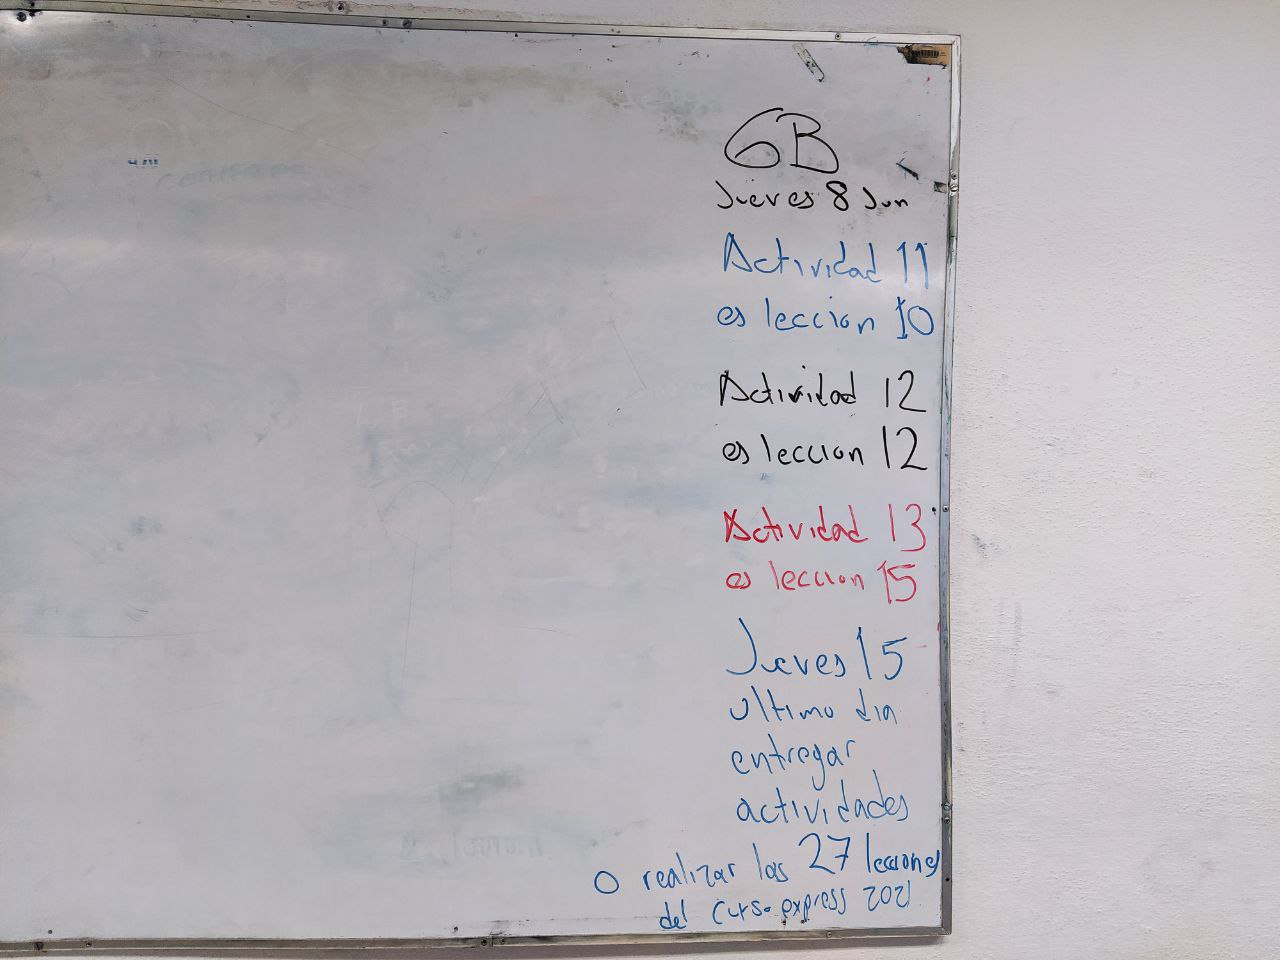 6B
Jueves 8 Jun
Actividad 11
es leccion 10
Actividad 12
es leccion 12
Actividad 13
es leccion 15
Jueves 15
ultimo dia
entregar
actividades
O realizar las 27 lecciones
del curso express 2021